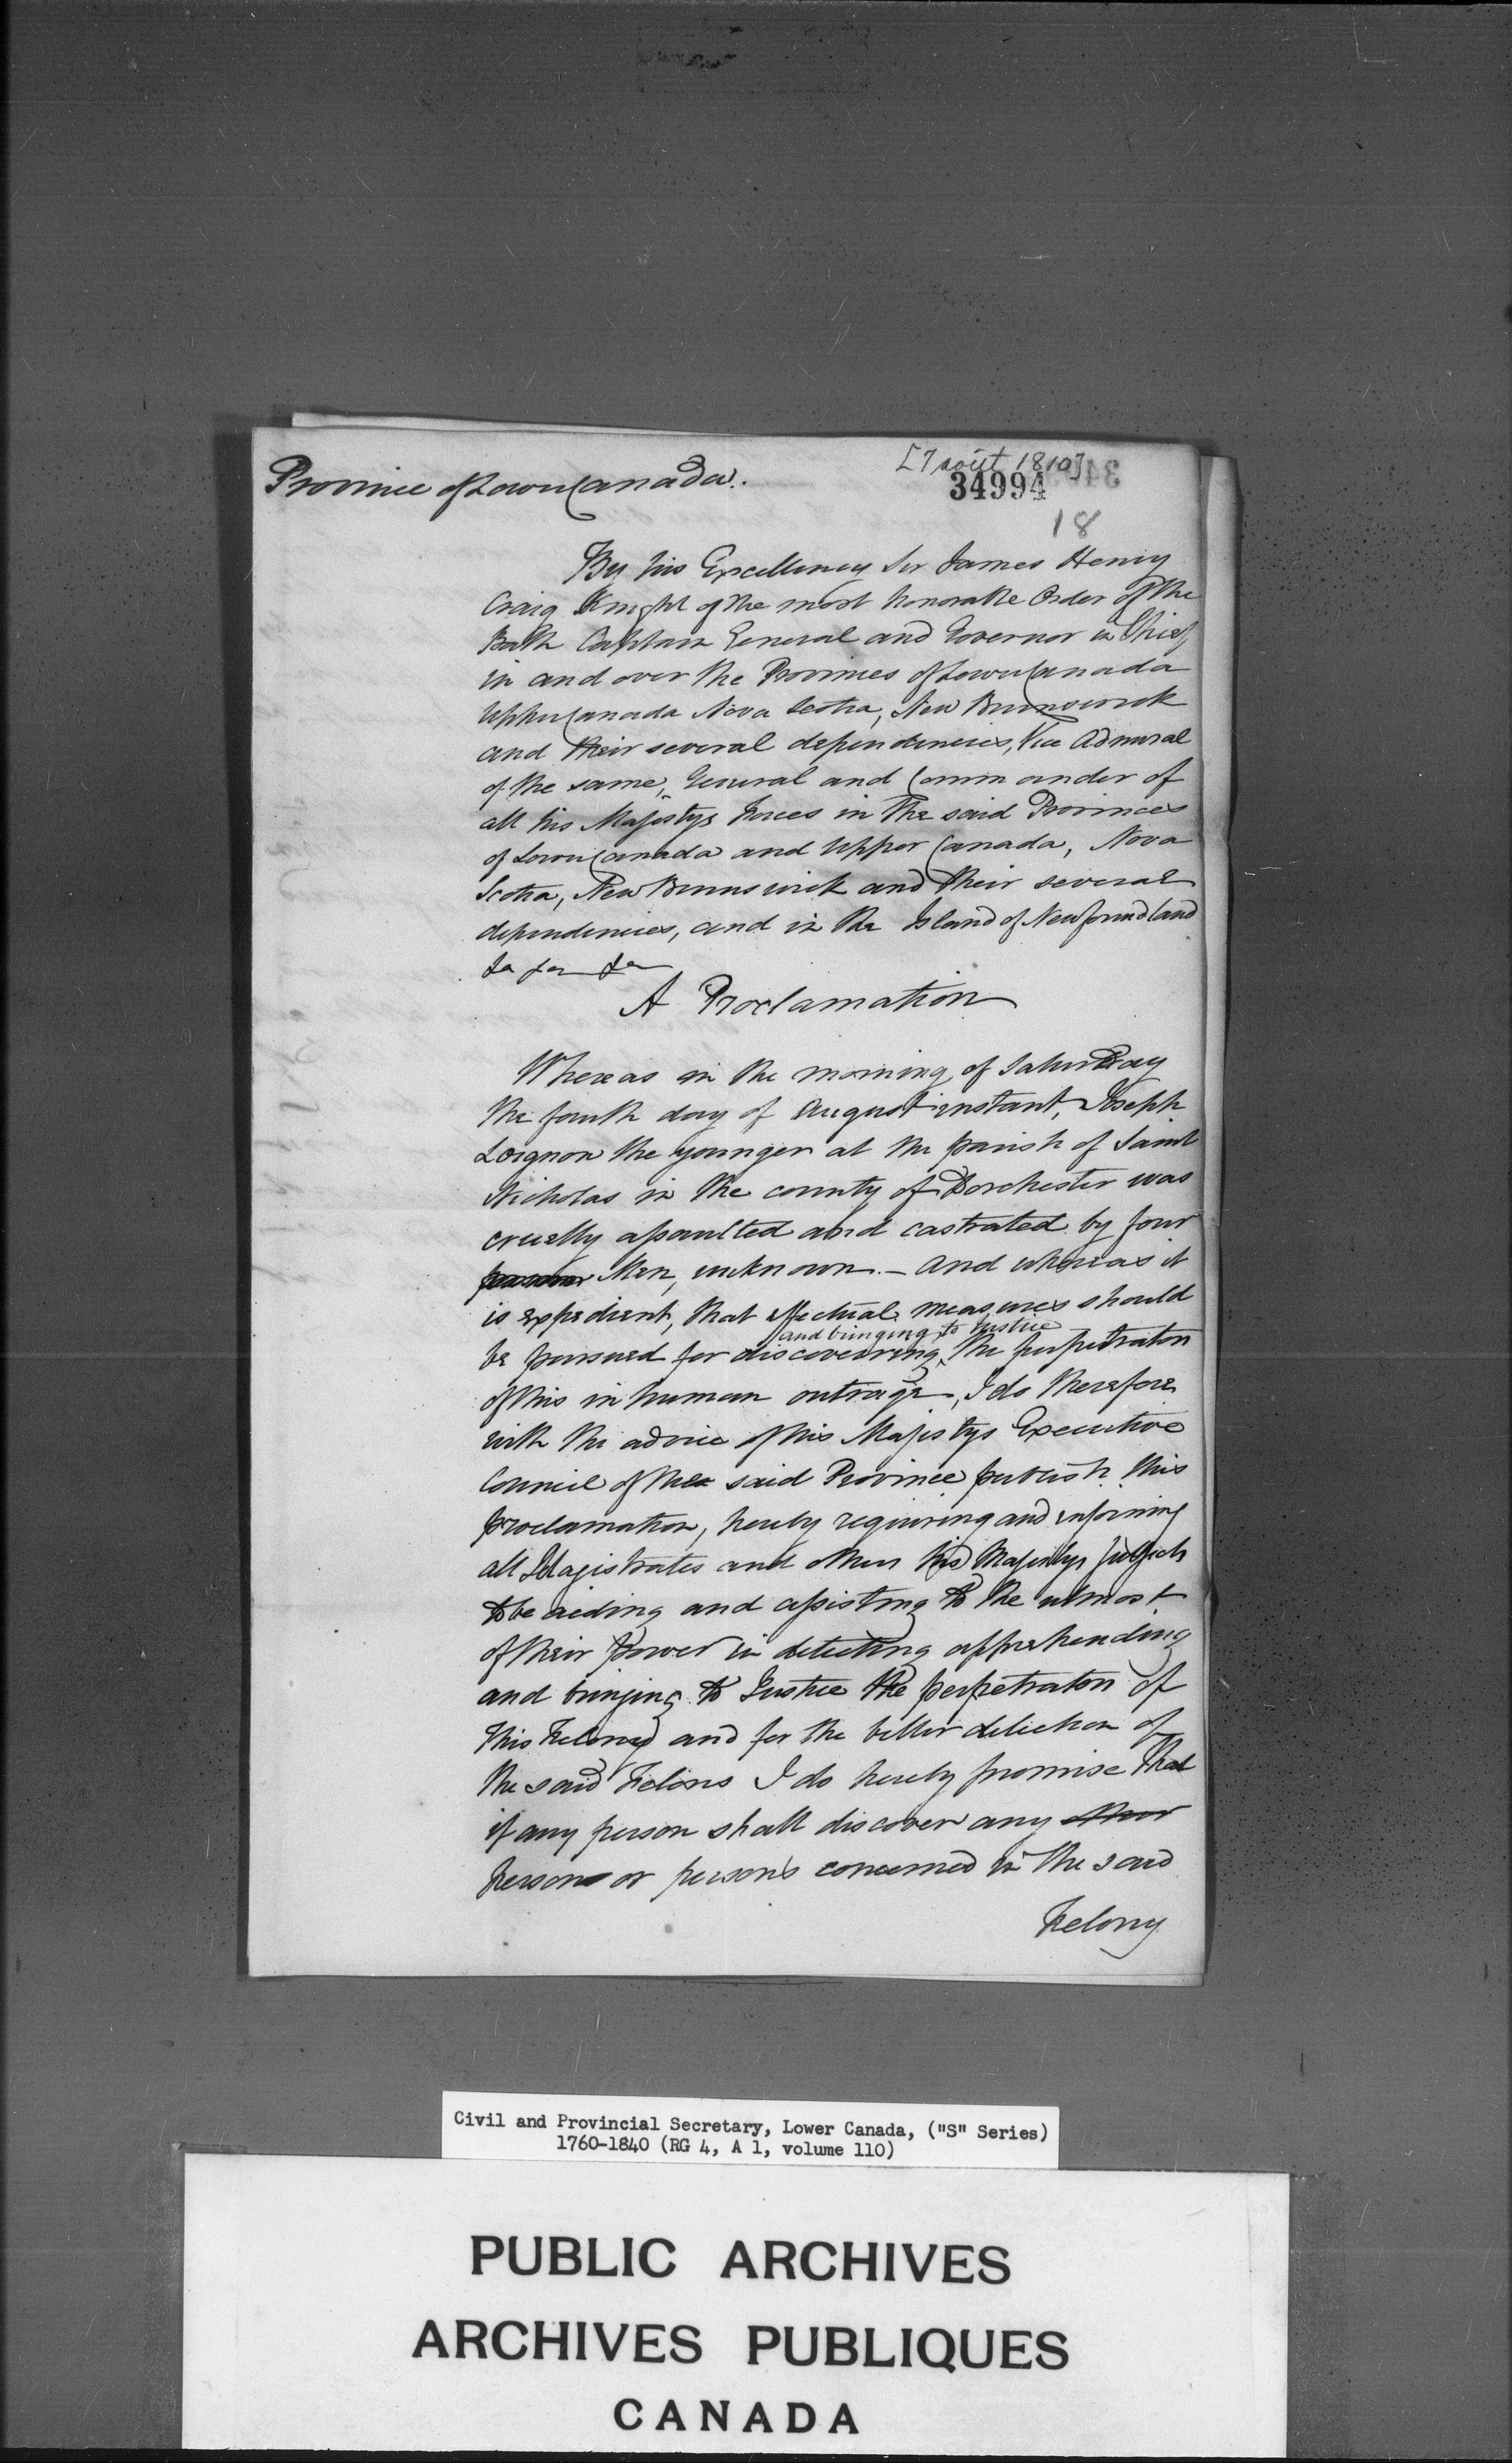 Province of Lower Canada.
[7 août 1810]
34994
18
By his Excellency Sir James Henry
Craig Knight of the most honorable Order of the
Bath Captain General and Governor in Chief,
in and over the Provinces of Lower Canada
Upper Canada Nova Scotia, New Brunswick
and their several dependencies, Vice Admiral
of the same, General and Commander of
all his Majestys Forces in the said Provinces
of Lower Canada and Upper Canada, Nova
Scotia, New Brunswick and their several
dependencies, and in the Island of Newfoundland
&a &a &a
A Proclamation
Whereas in the morning of Saturday
the fourth day of August instant, Joseph
Loignon the younger at the parish of Saint
Nicholas in the county of Dorchester was
cruelly assaulted and castrated by four
Men, unknown. – And whereas it
is expedient, that effectual measures should
and bringing to Justice
be pursued for discovering the perpetrators
of this inhuman outrage, I do therefore
with the advice of his Majestys Executive
Council of the said Province publish this
proclamation, hereby requiring and enjoining
all Magistrates and others his Majestys subjects
to be aiding and assisting to the utmost
of their power in detecting apprehending
and bringing to Justice the perpetrators of
this Felony and for the better detection of
the said Felons I do hereby promise that
if any person shall discover any other
person or persons concerned in the said
Felony
Civil and Provincial Secretary, Lower Canada, ("S" Series)
1760-1840 (RG 4, A 1, volume 110)
PUBLIC ARCHIVES
ARCHIVES PUBLIQUES
CANADA